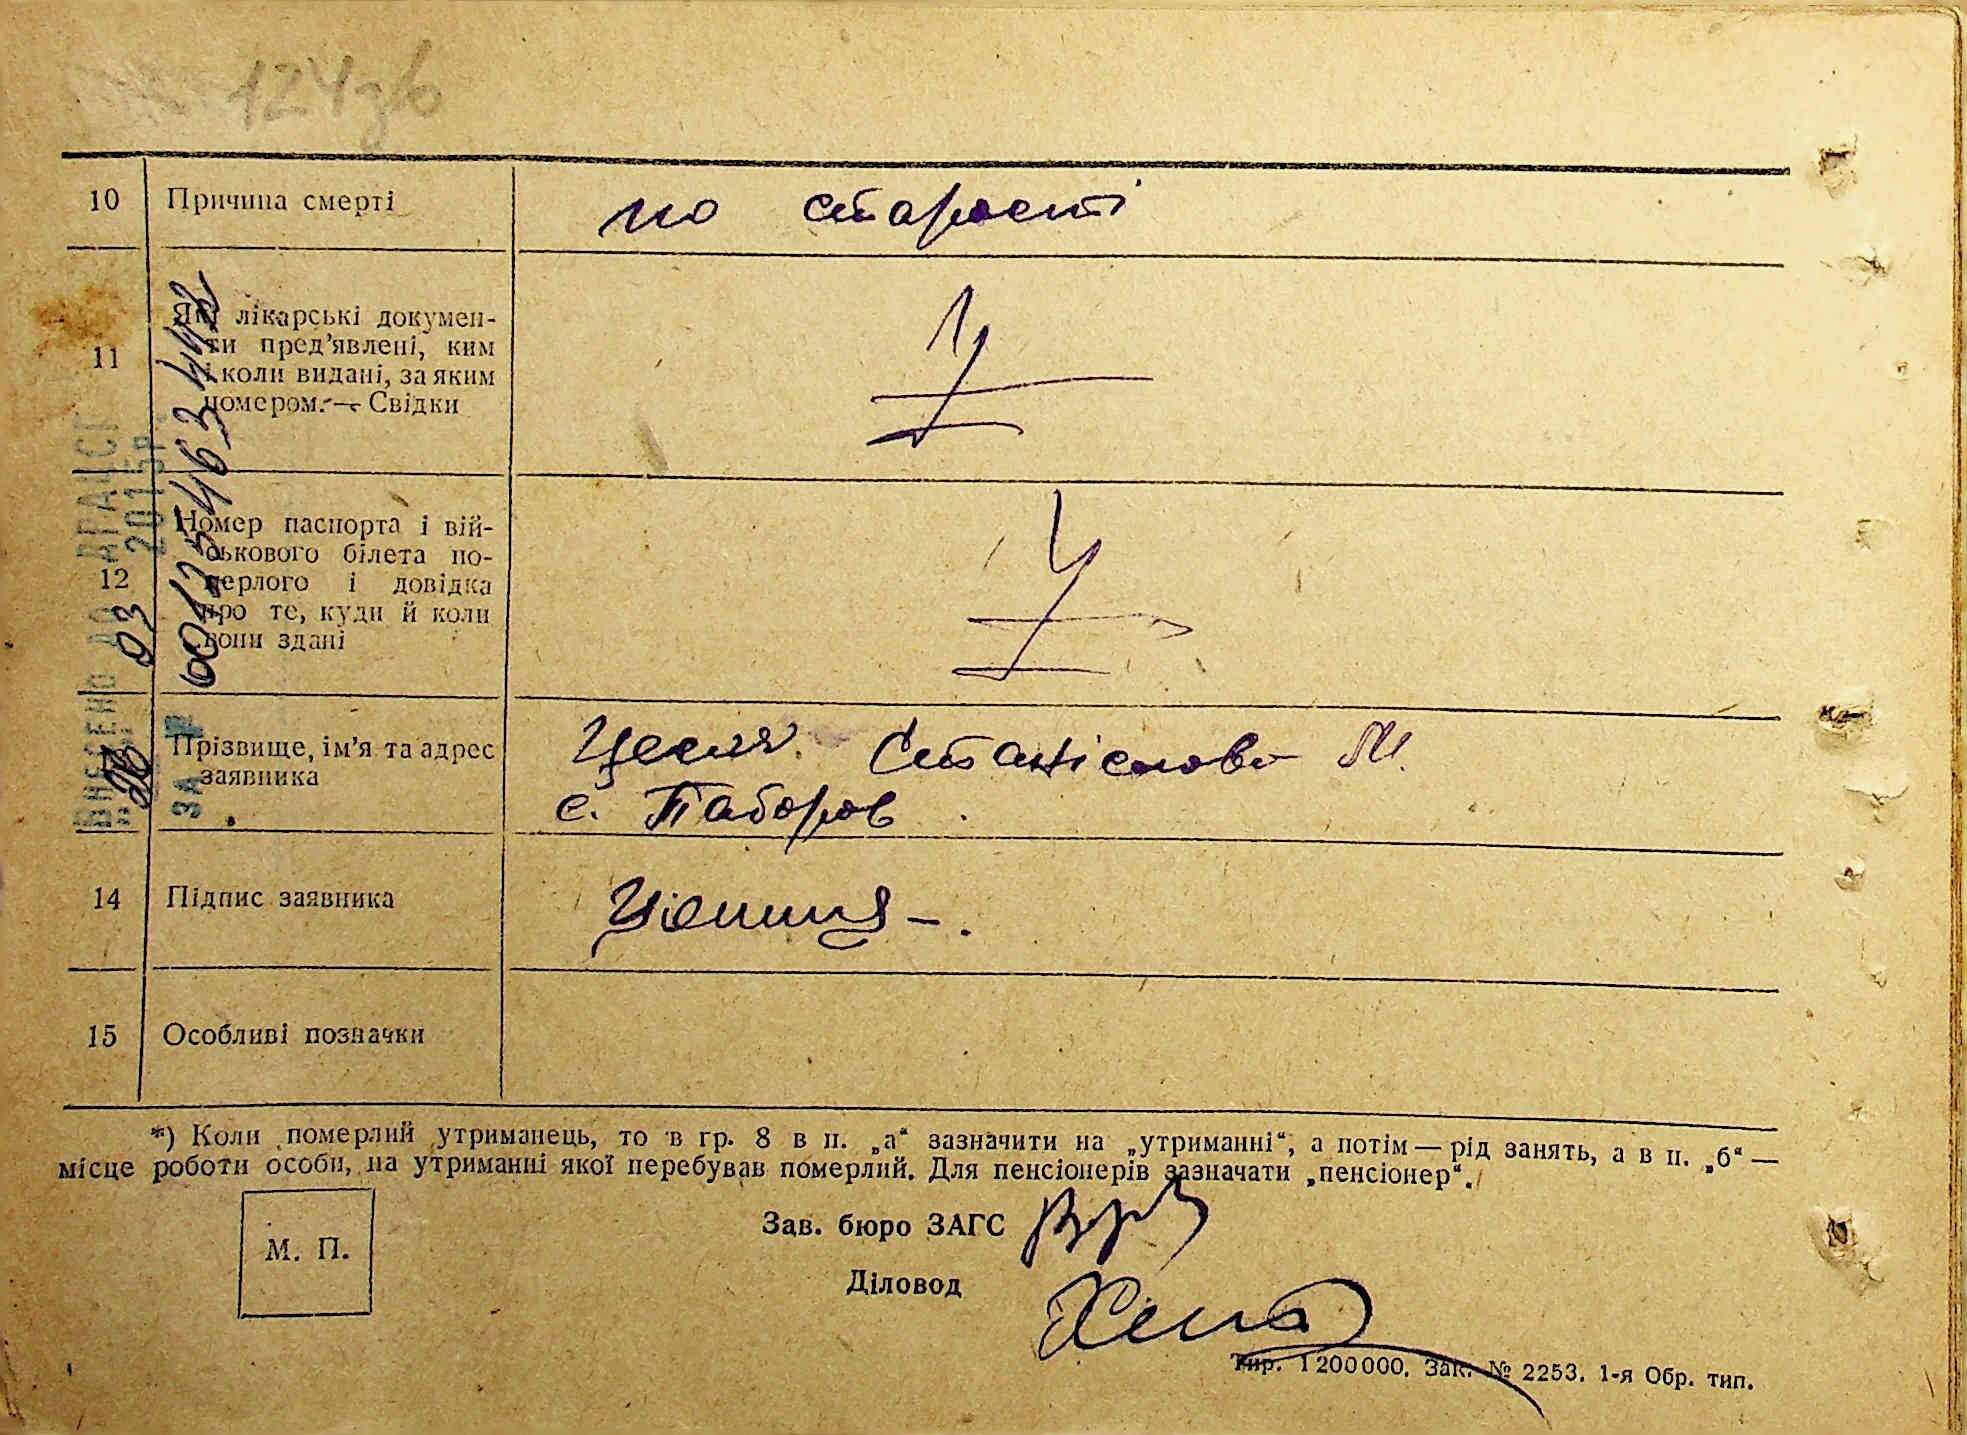 124зв
10 Причина смерті по старості
11 Які лікарські докумен-
ти пред'явлені, ким
і коли видані, за яким
номером. — Свідки
12 Номер паспорта і вій-
ськового білета по-
мерлого і довідка
про те, куди й коли
вони здані
Прізвище, ім'я та адрес
заявника
с. Таборов
14 Підпис заявника
15 Особливі позначки
ВНЕСЕНО ДО ДРАЦСГ
03 2015р.
ЗА №
*) Коли померлий утриманець, то в гр. 8 в п. „а“ зазначити на „утриманні“, а потім — рід занять, а в п. „б“ —
місце роботи особи, на утриманні якої перебував померлий. Для пенсіонерів зазначати „пенсіонер“.
М. П.
Зав. бюро ЗАГС
Діловод
Тир. 1200000. Зак. № 2253. 1-я Обр. тип.